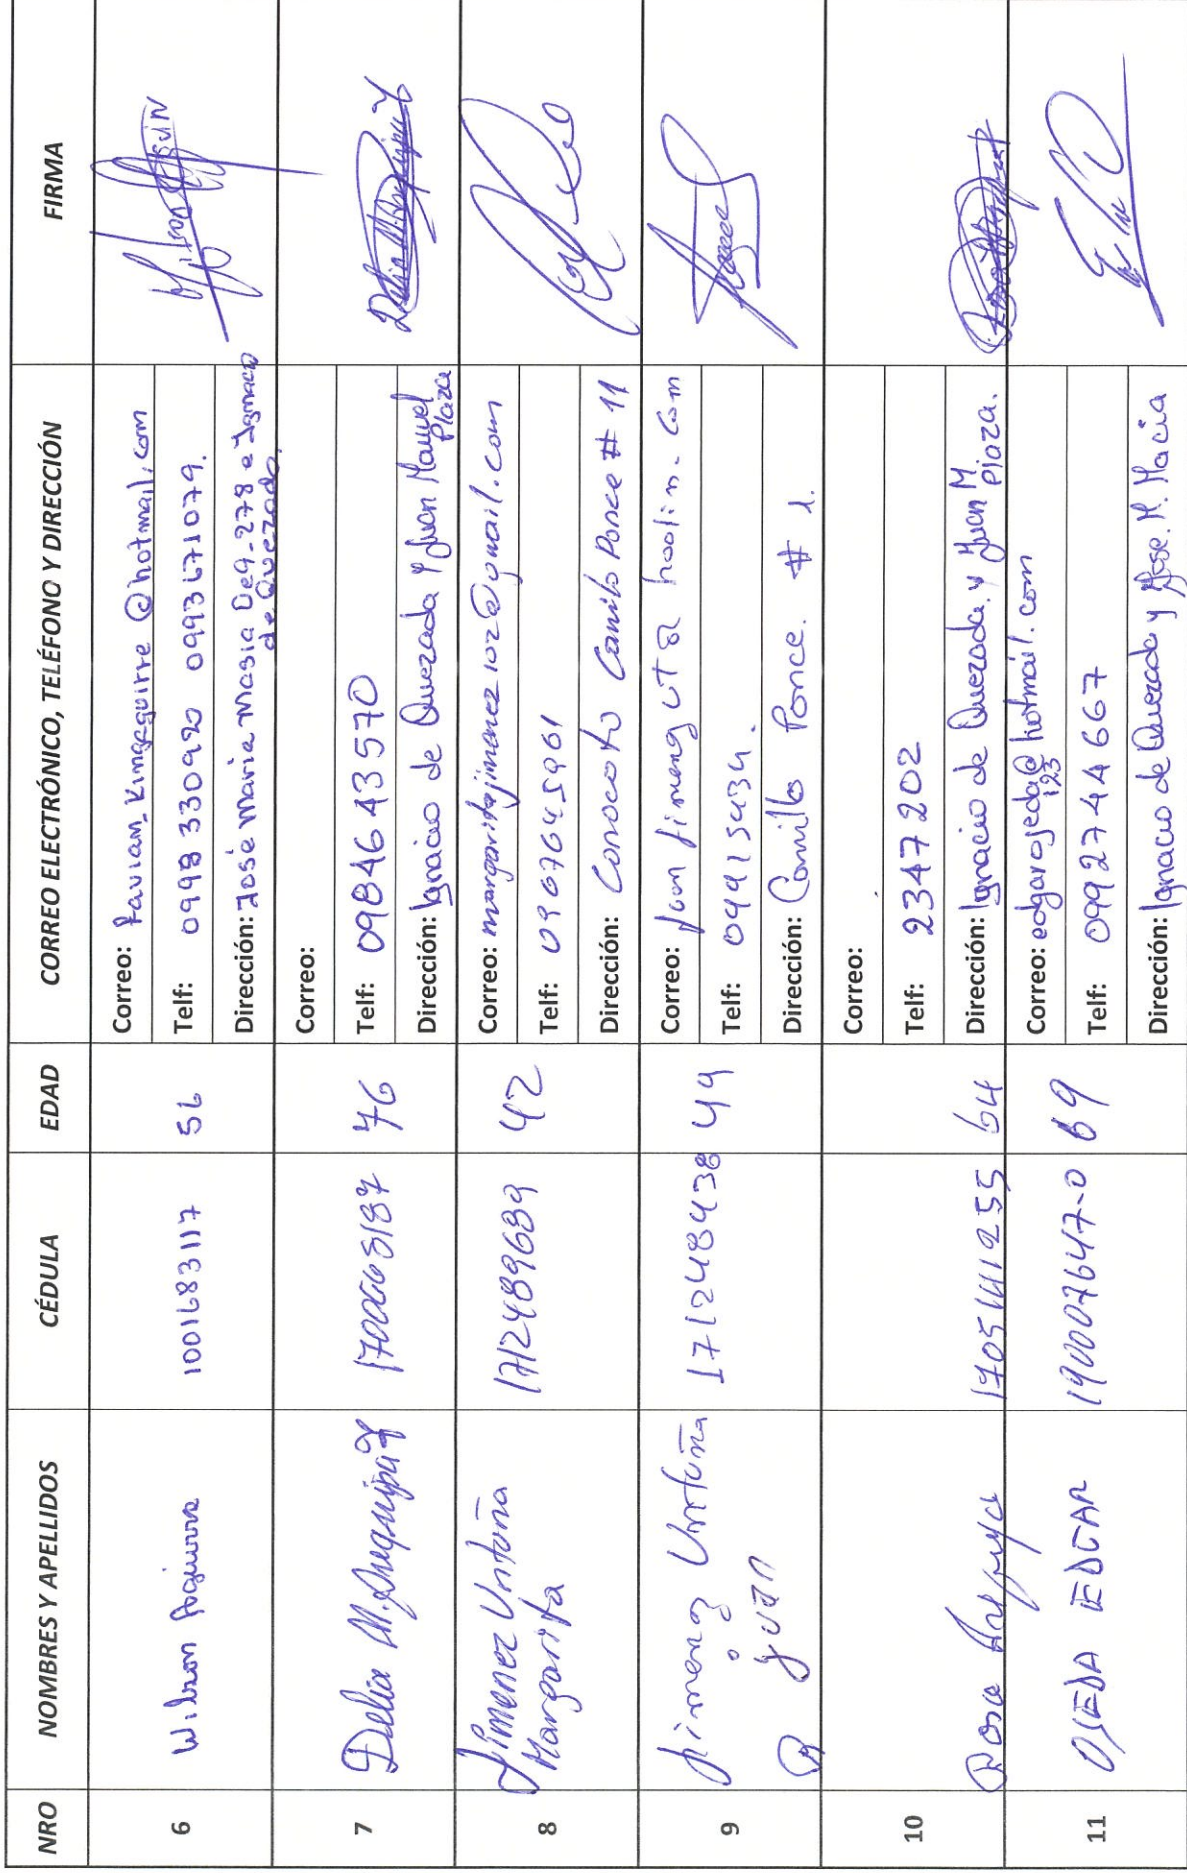 NRO NOMBRES Y APELLIDOS CÉDULA EDAD CORREO ELECTRÓNICO, TELÉFONO Y DIRECCIÓN FIRMA
6 Wilson Aguirre 1001683117 56
Correo: favian_kingaguirre@hotmail.com
Telf: 0998 33092 0993671079.
Dirección: José Maria Masia Oe9-278 e Ignacio
de Quezada.
7 Delia M. 76
Correo:
Telf: 0984643570
Dirección: Ignacio de Quezada y Juan Manuel
Plaza
8 Jimenez Untuña
Margarita
1712489689 42
Correo: margaritajimenez102@gmail.com
Telf: 0967645961
Dirección: Conocoto Camilo Ponce # 11
9 Jimenez Untuña
Juan
171248938 49
Correo:
Telf:
Dirección: Camillo Ponce. # 1.
10 Rosa 64
Correo:
Telf: 2347202
Dirección: Ignacio de Quezada. y Juan M.
Plaza.
11 OJEDA EDGAR 190007647-0 69
Correo: edgarojeda@hotmail.com
123
Telf: 0992744667
Dirección: Ignacio de Quezada y Jose. M. Macia